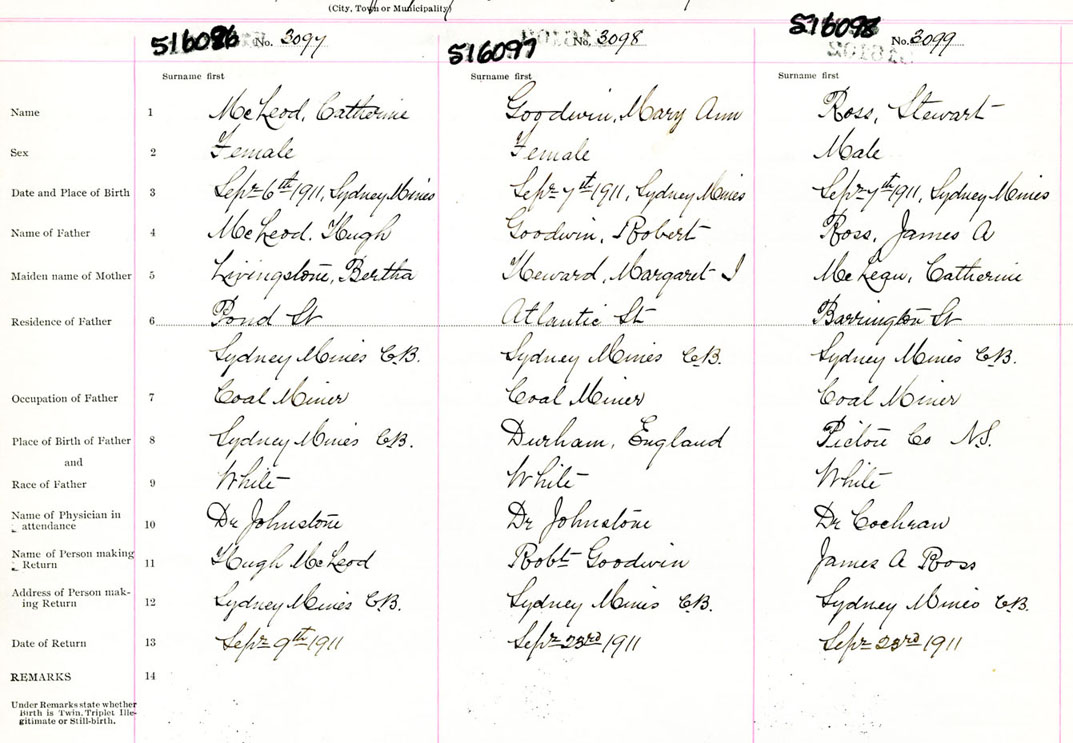 (City, Town or Municipality)
516096 No. 3097 516097 No. 3098 516098 No. 3099
Surname first Surname first Surname first
Name 1 McLeod, Catherine Goodwin, Mary Ann Ross, Stewart
Sex 2 Female Female Male
Date and Place of Birth 3 Sepr 6th 1911, Sydney Mines Sepr 7th 1911, Sydney Mines Sepr 7th 1911, Sydney Mines
Name of Father 4 McLeod, Hugh Goodwin, Robert Ross, James A
Maiden name of Mother 5 Livingstone, Bertha Heward, Margaret J McLean, Catherine
Residence of Father 6 Pond St Atlantic St Barrington St
Sydney Mines C.B. Sydney Mines C.B. Sydney Mines C.B.
Occupation of Father 7 Coal Miner Coal Miner Coal Miner
Place of Birth of Father 8 Sydney Mines C.B. Durham, England Pictou Co N.S.
and
Race of Father 9 White White White
Name of Physician in
attendance 10 Dr Johnstone Dr Johnstone Dr Cochran
Name of Person making
Return 11 Hugh McLeod Robt Goodwin James A Ross
Address of Person mak-
ing Return 12 Sydney Mines C.B. Sydney Mines C.B. Sydney Mines C.B.
Date of Return 13 Sepr 9th 1911 Sepr 23rd 1911 Sepr 23rd 1911
REMARKS 14
Under Remarks state whether
Birth is Twin, Triplet Ille-
gitimate or Still-birth.